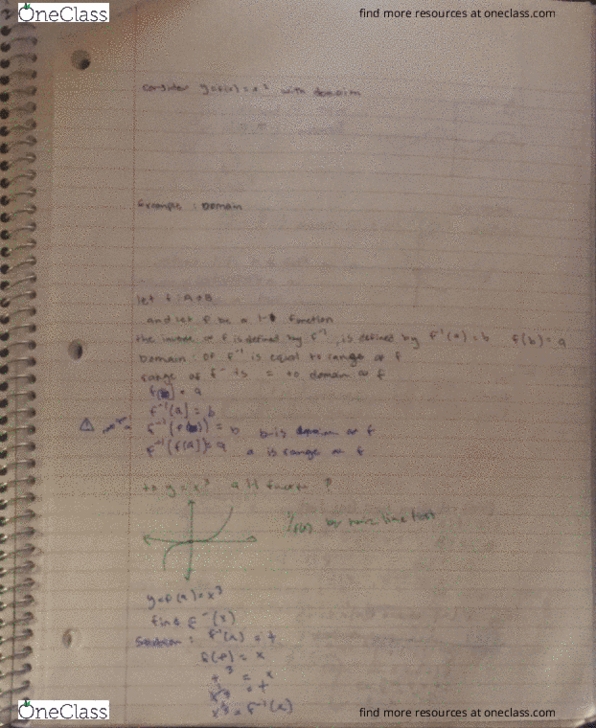 OneClass
find more resources at oneclass.com
consider y=f(x)=x² with domain
Example : Domain
let f : A→B
and let f be a 1-1 function
the inverse of f is defined by f⁻¹, is defined by f⁻¹(a)=b f(b)=a
Domain: of f⁻¹ is equal to range of f
range of f⁻ is = to domain of f
= a
f⁻¹(a) = b
= b b is domain of f
f⁻¹(f(a))=a a is range of f
y=x³ a 1-1 function ?
by horiz line test
y=f(x)=x³
find f⁻(x)
Solution: f⁻¹(x) = t
f(t) = x
t³ = x
= t
= f⁻¹(x)
OneClass
find more resources at oneclass.com